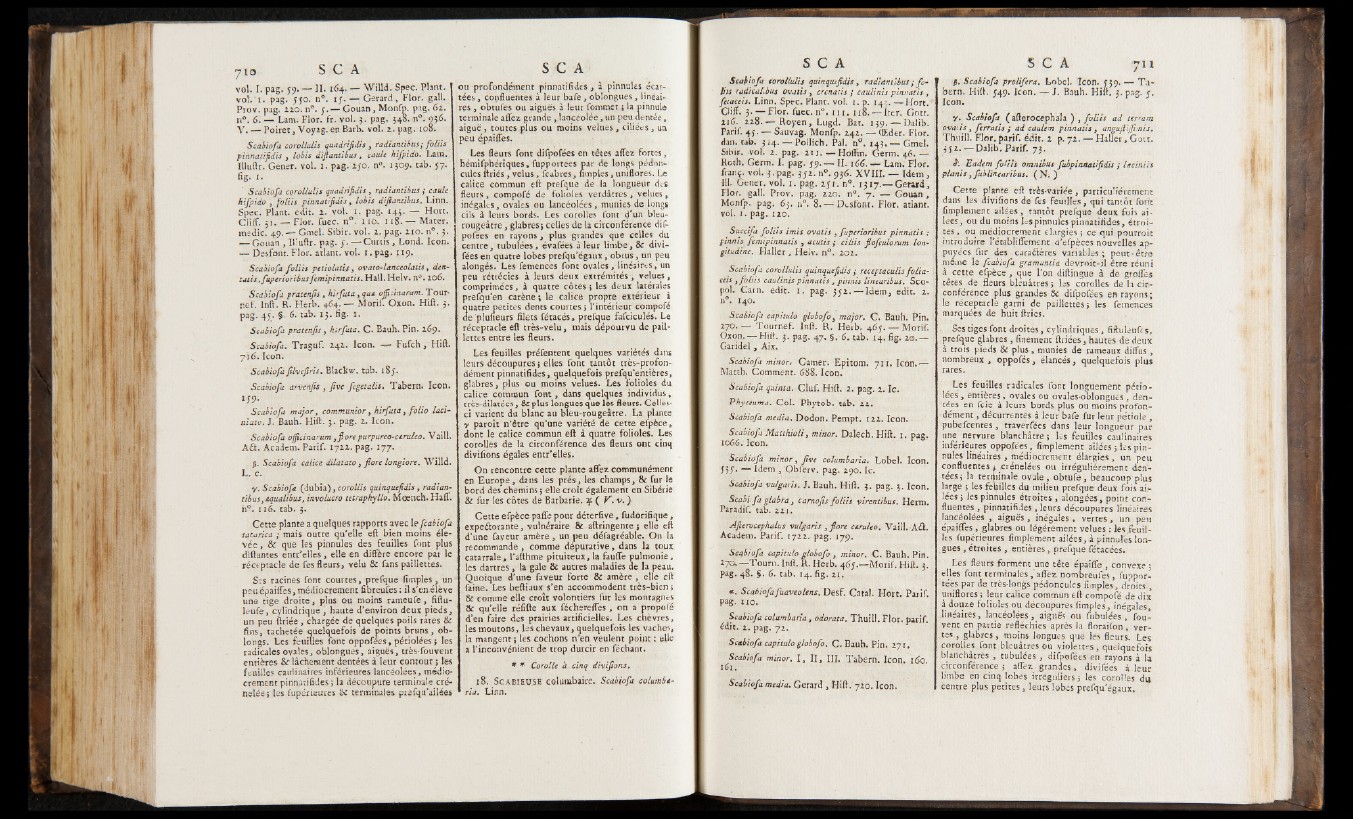 710 S C A
vol. I. pag. 59. — II. 164. — Willd. Spec. Plant.
vol. 1. pag. 550. n°. 15. — Gerard, Flor. gall.
Prov. pag. 220. n°. 5. — Gouan, Monsp. pag. 62.
n°. 6. — Lam. Flor. fr. vol. 3. pag. 348. n°. 936.
V. — Poiret, Voyag. en Barb. vol. 2. pag. 108.
Scabiosa corollulis quadrifidis, radiantibus; foliis
pinnatifidis, lobis distantibus, caule hispido. Lam.
Illustr. Gener. vol. 1. pag. 250. n°. 1309. tab. 57.
fig. 1.
Scabiosa corollulis quadrifidis, radiantibus; caule
hispido, foliis pinnatifidis, lobis distantibus. Linn.
Spec. Plant. edit. 2. vol. 1. pag. 143. — Hort.
Cliff. 31. — Flor. suec. n° 110. 118. — Mater.
medic. 49. — Gmel. Sibir. vol. 2. pag. 210. n°. 3.
— Gouan, Illustr. pag. 5. — Curtis, Lond. Icon.
— Desfont. Flor. atlant. vol. 1. pag. 119.
Scabiosa foliis petiolatis, ovato-lanceolatis, den-
tatis, superioribus semipinnatis. Hall. Helv. n°. 206.
Scabiosa pratensis, hirsuta, quæ officinarum. Tour-
nef. Inst. R. Herb. 464. — Moris. Oxon. Hist. 3.
pag. 45. §. 6. tab. 13. fig. 1.
Scabiosa pratensis, hirsuta. C. Bauh. Pin. 269.
Scabiosa. Tragus. 242. Icon. — Fusch, Hist.
716. Icon.
Scabiosa silvestris. Blackw. tab. 185.
Scabiosa arvensis, sive segetalis. Tabern. Icon.
159.
Scabiosa major, communior, hirsuta, folio laci-
niato. J. Bauh. Hist. 3. pag. 2. Icon.
Scabiosa officinarum, flore purpureo-ceruleo. Vaill.
Act. Academ. Paris. 1722. pag. 177.
β. Scabiosa calice dilatato, flore longiore. Willd.
L. c.
γ. Scabiosa (dubia), corollis quinquefidis, radian-
tibus, æqualibus, involucro tetraphyllo. Mœnch. Hass.
n°. 126. tab. 3.
Cette plante a quelques rapports avec le scabiosa
tatarica; mais outre qu'elle est bien moins éle-
vée, & que les pinnules des feuilles sont plus
distantes entr'elles, elle en diffère encore par le
réceptacle de ses fleurs, velu & sans paillettes.
Ses racines sont courtes, presque simples, un
peu épaisses, médiocrement fibreuses: il s'en élève
une tige droite, plus ou moins rameuse, fistu-
leuse, cylindrique, haute d'environ deux pieds,
un peu striée, chargée de quelques poils rares &
fins, tachetée quelquefois de points bruns, ob-
longs. Les feuilles sont opposées, pétiolées; les
radicales ovales, oblongues, aiguës, très-souvent
entières & lâchement dentées à leur contour; les
feuilles caulinaires inférieures lancéolées, médio-
crement pinnatifides; la découpure terminale cré-
nelée; les supérieures & terminales presqu'ailées
S C A
ou profondément pinnatifides, à pinnules écar-
tées, confluentes à leur base, oblongues, linéai-
res, obtuses ou aiguës à leur sommet; la pinnule
terminale assez grande, lancéolée, un peu dentée,
aiguë, toutes plus ou moins velues, ciliées, un
peu épaisses.
Les fleurs sont disposées en têtes assez fortes,
hémisphériques, supportées par de longs pédon-
cules striés, velus, scabres, simples, uniflores. Le
calice commun est presque de la longueur des
fleurs, composé de folioles verdâtres, velues,
inégales, ovales ou lancéolées, munies de longs
cils à leurs bords. Les corolles sont d'un bleu-
rougeâtre, glabres; celles de la circonférence dis-
posées en rayons, plus grandes que celles du
centre, tubulées, évasées à leur limbe, & divi-
sées en quatre lobes presqu'égaux, obtus, un peu
alongés. Les semences sont ovales, linéaires, un
peu rétrécies à leurs deux extrémités, velues,
comprimées, à quatre côtes; les deux latérales
presqu'en carène; le calice propre extérieur à
quatre petites dents courtes; l'intérieur composé
de plusieurs filets sétacés, presque fasciculés. Le
réceptacle est très-velu, mais dépourvu de pail-
lettes entre les fleurs.
Les feuilles présentent quelques variétés dans
leurs découpures; elles sont tantôt très-profon-
dément pinnatifides, quelquefois presqu'entières,
glabres, plus ou moins velues. Les folioles du
calice commun sont, dans quelques individus,
très-dilatées, & plus longues que les fleurs. Celles-
ci varient du blanc au bleu-rougeâtre. La plante
γ paroît n'être qu'une variété de cette espèce,
dont le calice commun est à quatre folioles. Les
corolles de la circonférence des fleurs ont cinq
divisions égales entr'elles.
On rencontre cette plante assez communément
en Europe, dans les prés, les champs, & sur le
bord des chemins; elle croît également en Sibérie
& sur les côtes de Barbarie. ♃ ( V. v. )
Cette espèce passe pour détersive, sudorifique,
expectorante, vulnéraire & astringente; elle est
d'une saveur amère, un peu désagréable. On la
recommande, comme dépurative, dans la toux
catarrale, l'asthme pituiteux, la fausse pulmonie,
les dartres, la gale & autres maladies de la peau.
Quoique d'une saveur forte & amère, elle est
saine. Les bestiaux s'en accommodent très-bien;
& comme elle croît volontiers sur les montagnes
& qu'elle résiste aux sécheresses, on a proposé
d'en faire des prairies artificielles. Les chèvres,
les moutons, les chevaux, quelquefois les vaches,
la mangent; les cochons n'en veulent point: elle
a l'inconvénient de trop durcir en séchant.
* * Corolle à cinq divisions.
18. SCABIEUSE columbaire. Scabiosa columba-
ria. Linn.
S C A
Scabiosa corollulis quinquefidis, radiantibus; fo-
liis radicalibus ovatis, crenatis; caulinis pinnatis,
setaceis. Linn. Spec. Plant. vol. 1. p. 143. — Hort.
Cliff. 3. — Flor. suec. n°. 111. 118. — Iter. Gott.
216. 228. — Royen, Lugd. Bat. 139. — Dalib.
Paris. 45. — Sauvag. Monsp. 242. — Œder. Flor.
dan. tab. 314. — Pollich. Pal. n°. 143. — Gmel.
Sibir. vol. 2. pag. 211. — Hoffm. Germ. 46. —
Roth. Germ. I. pag. 59. — II. 166. — Lam. Flor.
franç. vol. 3. pag. 352. n°. 936. XVIII. — Idem,
Ill. Gener. vol. 1. pag. 251. n°. 1317. — Gerard,
Flor. gall. Prov. pag. 220. n°. 7. — Gouan,
Monsp. pag. 63. n°. 8. — Desfont. Flor. atlant.
vol. 1. pag. 120.
Succisa foliis imis ovatis, superioribus pinnatis;
pinnis semipinnatis, acutis; ciliis flosculorum lon-
gitudine. Haller, Helv. n°. 202.
Scabiosa corollulis quinquefidis; receptaculis folia-
ceis, foliis caulinis pinnatis, pinnis linearibus. Sco-
pol. Carn. edit. 1. pag. 352. — Idem, edit. 2.
n°. 140.
Scabiosa capitulo globoso, major. C. Bauh. Pin.
270. — Tournef. Inst. R. Herb. 465. — Moris.
Oxon. — Hist. 3. pag. 47. §. 6. tab. 14. fig. 20. —
Garidel, Aix.
Scabiosa minor. Camer. Epitom. 711. Icon. —
Matth. Comment. 688. Icon.
Scabiosa quinta. Clus. Hist. 2. pag. 2. Ic.
Phyteuma. Col. Phytob. tab. 22.
Scabiosa media. Dodon. Pempt. 122. Icon.
Scabiosa Matthioli, minor. Dalech. Hist. 1. pag.
1066. Icon.
Scabiosa minor, sive columbaria. Lobel. Icon.
535. — Idem, Observ. pag. 290. Ic.
Scabiosa vulgaris. J. Bauh. Hist. 3. pag. 3. Icon.
Scabiosa glabra, carnosis foliis virentibus. Herm.
Paradis. tab. 221.
Asterocephalus vulgaris, flore ceruleo. Vaill. Act.
Academ. Paris. 1722. pag. 179.
Scabiosa capitulo globoso, minor. C. Bauh. Pin.
270. — Tourn. Inst. R. Herb. 465. — Moris. Hist. 3.
pag. 48. §. 6. tab. 14. fig. 21.
α. Scabiosa suaveolens. Desf. Catal. Hort. Paris.
pag. 110.
Scabiosa columbaria, odorata. Thuill. Flor. paris.
édit. 2. pag. 72.
Scabiosa capitulo globoso. C. Bauh. Pin. 271.
Scabiosa minor. I, II, III. Tabern. Icon. 160.
161.
Scabiosa media. Gerard, Hist. 720. Icon.
S C A 711
β. Scabiosa prolifera. Lobel. Icon. 539. — Ta-
bern. Hist. 549. Icon. — J. Bauh. Hist. 3. pag. 5.
Icon.
γ. Scabiosa (asterocephala), foliis ad terram
ovatis, serratis; ad caulem pinnatis, angustissimis.
Thuill. Flor. paris. édit. 2. p. 72. — Haller, Gott.
352. — Dalib. Paris. 73.
δ. Eadem foliis omnibus subpinnatifidis; laciniis
planis, sublinearibus. ( N. )
Cette plante est très-variée, particulièrement
dans les divisions de ses feuilles, qui tantôt sont
simplement ailées, tantôt presque deux fois ai-
lées, ou du moins les pinnules pinnatifides, étroi-
tes, ou médiocrement élargies; ce qui pourroit
introduire l'établissement d'espèces nouvelles ap-
puyées sur des caractères variables; peut-être
même le scabiosa gramuntia devroit-il être réuni
à cette espèce, que l'on distingue à de grosses
têtes de fleurs bleuâtres; les corolles de la cir-
conférence plus grandes & disposées en rayons;
le réceptacle garni de paillettes; les semences
marquées de huit stries.
Ses tiges sont droites, cylindriques, fistuleuses,
presque glabres, finement striées, hautes de deux
à trois pieds & plus, munies de rameaux diffus,
nombreux, opposés, élancés, quelquefois plus
rares.
Les feuilles radicales sont longuement pétio-
lées, entières, ovales ou ovales-oblongues, den-
tées en scie à leurs bords plus ou moins profon-
dément, décurrentes à leur base sur leur pétiole,
pubescentes, traversées dans leur longueur par
une nervure blanchâtre; les feuilles caulinaires
inférieures opposées, simplement ailées; les pin-
nules linéaires, médiocrement élargies, un peu
confluentes, crénelées ou irrégulièrement den-
tées; la terminale ovale, obtuse, beaucoup plus
large; les feuilles du milieu presque deux fois ai-
lées; les pinnules étroites, alongées, point con-
fluentes, pinnatifides, leurs découpures linéaires
lancéolées, aiguës, inégales, vertes, un peu
épaisses, glabres ou légérement velues; les feuil-
les supérieures simplement ailées, à pinnules lon-
gues, étroites, entières, presque sétacées.
Les fleurs forment une tête épaisse, convexe;
elles sont terminales, assez nombreuses, suppor-
tées par de très-longs pédoncules simples, droits,
uniflores; leur calice commun est composé de dix
à douze folioles ou découpures simples, inégales,
linéaires, lancéolées, aiguës ou subulées, sou-
vent en partie réfléchies après la floraison, ver-
tes, glabres, moins longues que les fleurs. Les
corolles sont bleuâtres ou violettes, quelquefois
blanchâtres, tubulées, disposées en rayons à la
circonférence; assez grandes, divisées à leur
limbe en cinq lobes irréguliers; les corolles du
centre plus petites, leurs lobes presqu'égaux.